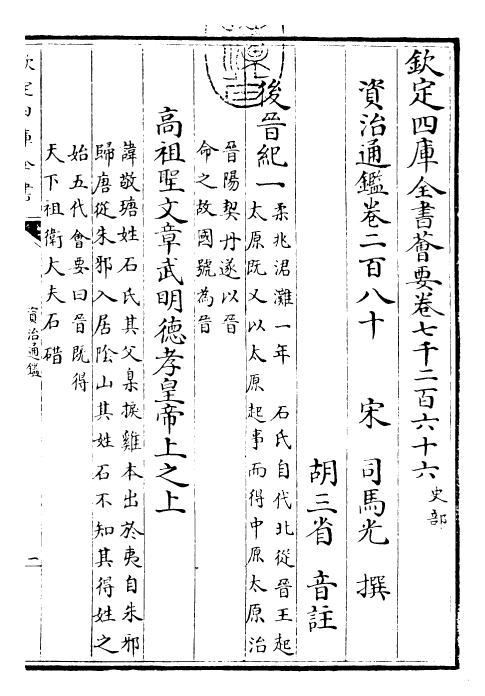 欽定四庫全書薈要卷七千二百六十六 史部
資治通鑑卷二百八十 宋 司馬光 撰
胡三省 音註
後晉紀一 柔兆涒灘一年 石氏自代北從晉王起
太原既又以太原起事而得中原太原治
晉陽契丹遂以晉
命之故國號為晉
高祖聖文章武明德孝皇帝上之上
諱敬瑭姓石氏其父臬捩雞本出於夷自朱邪
歸唐從朱邪入居陰山其姓石不知其得姓之
始五代會要曰晉既得
天下祖衛大夫石碏
欽定四庫全書
資治通鑑
一